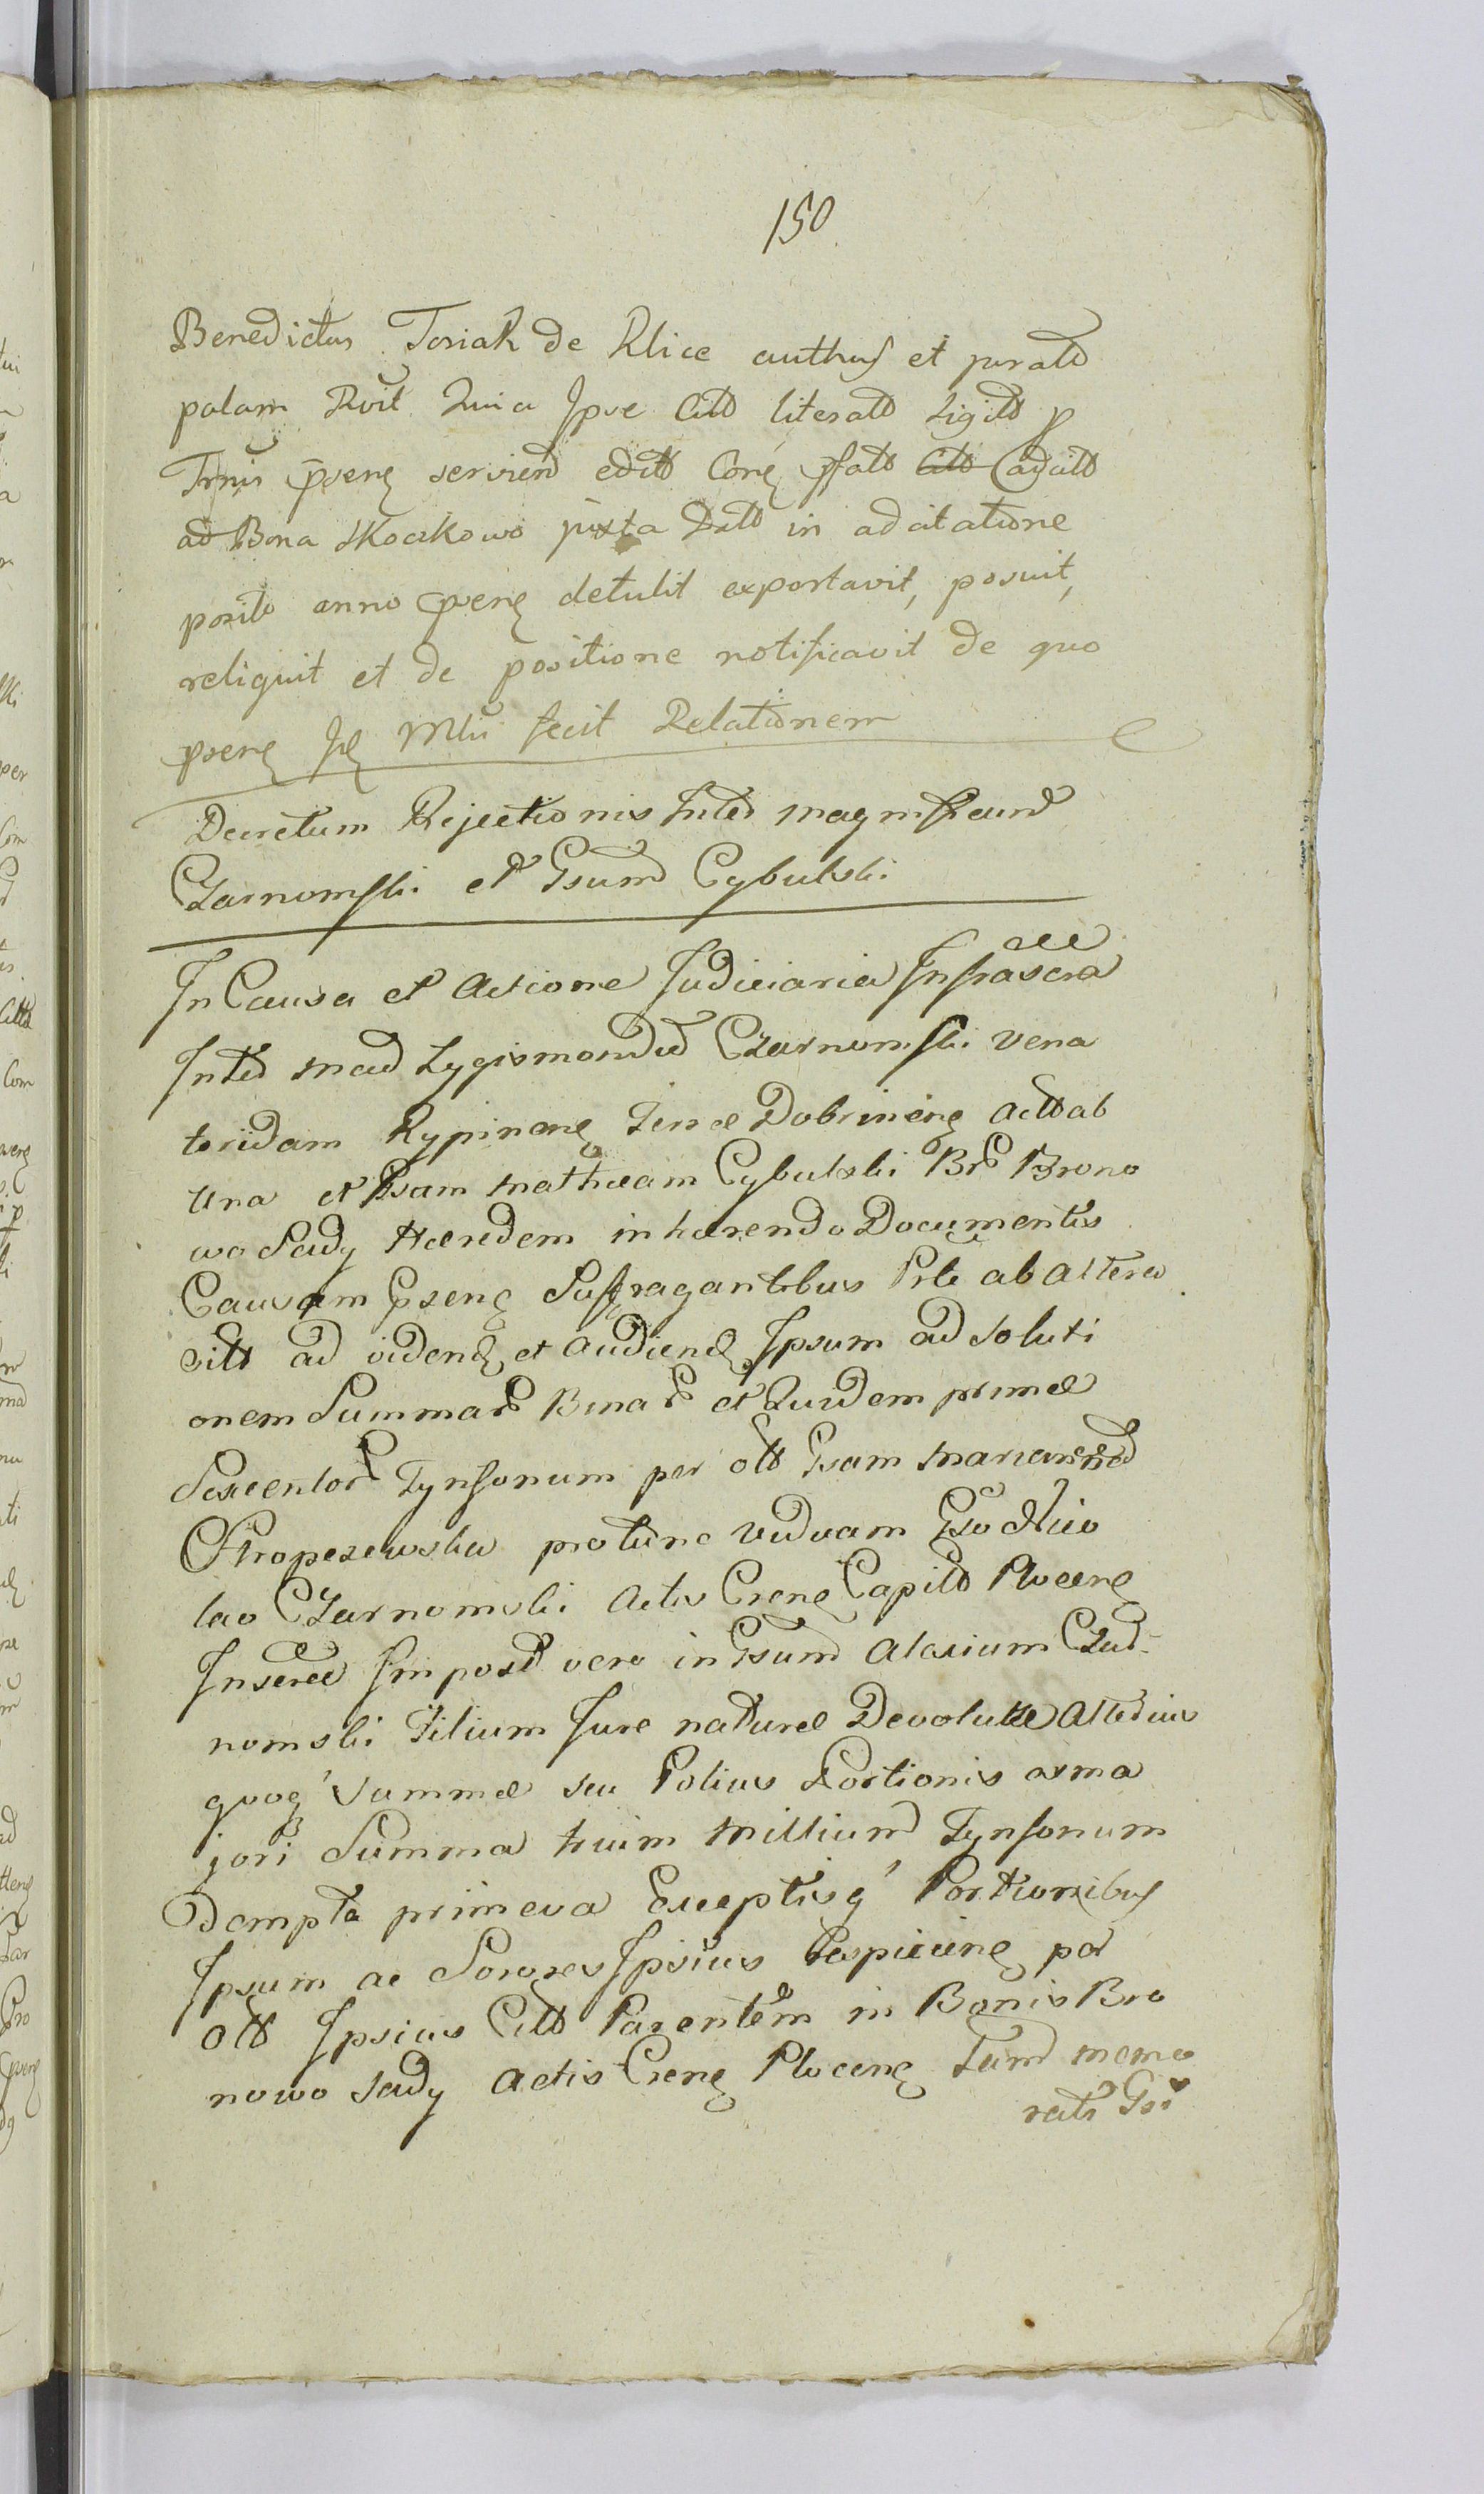 150
Benedictus Tosiak de Klice authus et jurato
palam Rvit Quia Ipse Citt literatt Sigilt p
Trnis psens serviend editt Cong pfatt Citt adcitt
ad Bona Skoczkowo juxta Datt in adcitatione
posito anno psens detulit exportavit, posuit,
reliquit et de positione notificavit de quo
psens Mltr fecit Relationem
Decretum Rejectionis Inter Magnificum
Czarnomski et Gsum Cybulski
In Causa et Actione Judiciaria Infrascra
Inter Mcum Zygismondum Czarnomski Vena
toridam Rypinens Terrae Dobrinens Actt ab
una et Gsam Mathaeam Cybulski Br Brono
wo Sady Haeredem inhaerendo Documentis
Causam psens Suffragantibus Prte ab Altera
citt ad videng et audieng Ipsum ad soluti
onem Summar Binar et Quidem primae
Sexcentor Tynfonum per ott Gsam Mariannam
protunc viduam Gso Nico
lao Czarnomski Actis Crens Capitt Plocens
Inscrae Impost vero in Gsum Alexium Czar
nomski Filium Jure naturae Devolutae Alterius
quoq' Summae seu Potius Portionis exma
jori Summa trium Millium Tynfonum
Dempta primeva Exceptisq' Portionibus
Ipsum ac Sorores Ipsius Respiciens per
ott Ipsius Citt Parentem in Bonis Bro
nowo Sady Actis Crens Plocens Tum memo
rati Gsi